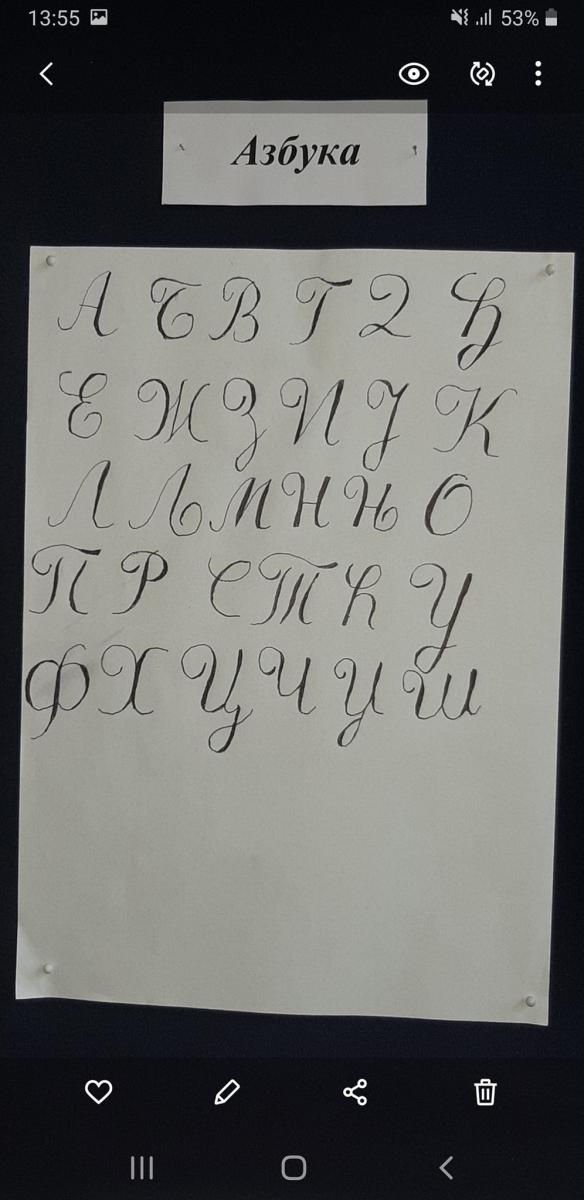 13:55 53%
Азбука
А Б В Г Д Ђ
Е Ж З И Ј К
Л Љ М Н Њ О
П Р С Т Ћ У
Ф Х Ц Ч Џ Ш